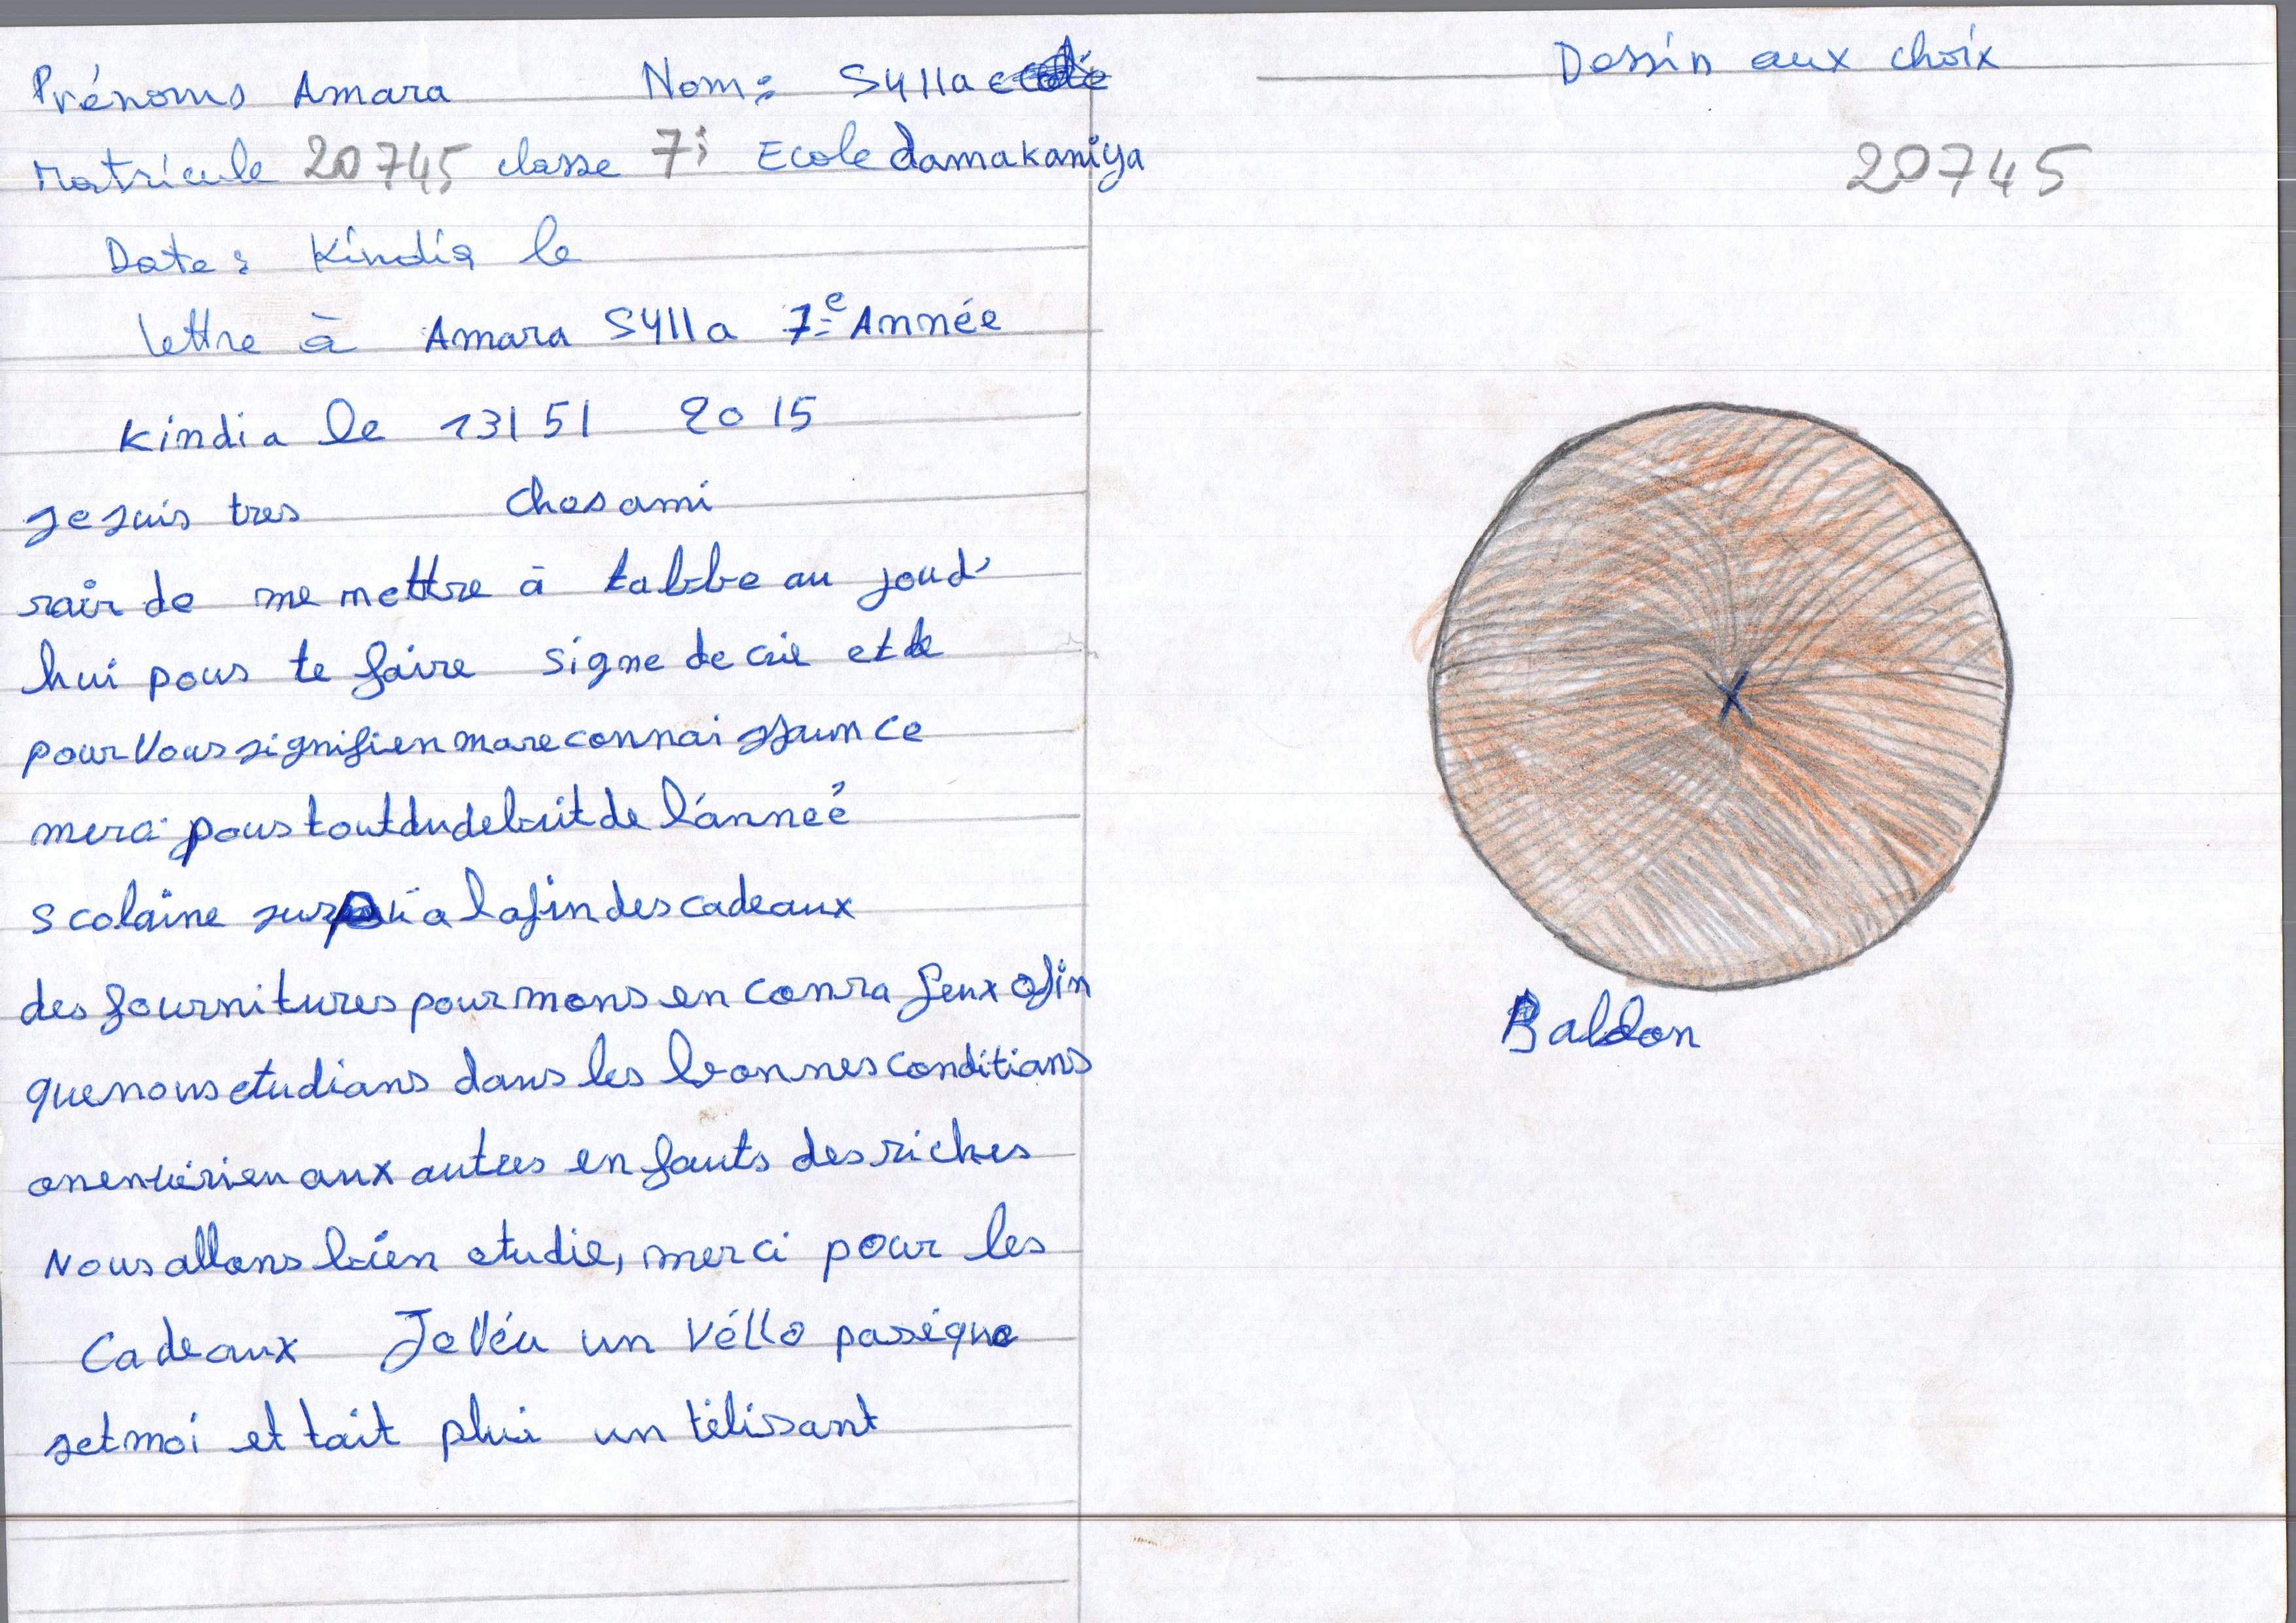 Prénoms Amara Nom: Sylla
Matricule 20745 classe 7è Ecole damakaniya
Date: Kindia le
lettre à Amara Sylla 7e Année
Kindia le 13/5/ 2015
Je suis tres Cher ami
rair de me mettre à tabbe au joud'
hui pour te faire signe de et
pour Vous signifien ma reconnaissaunce
merci pour tout du debuit de l'anneé
scolaine a la fin des cadeaux
des fournitures pour mons en feux afin
que nous etudians dans les bonnes conditians
aux autres enfauts des riches
Nous allons bien etudie, merci pour les
Cadeaux Je véu un véllo
set moi et tait plui un télissant
Dessin aux choix
20745
Baldon